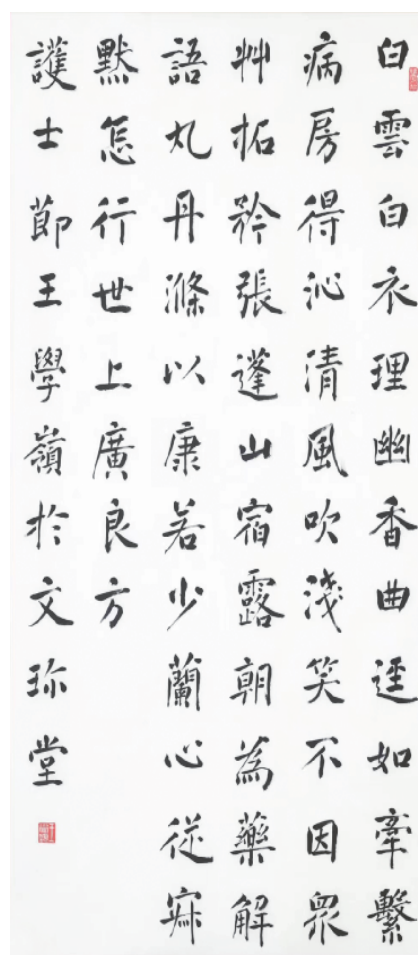 白雲白衣理幽香曲逕如牽繫
病房得沁清風吹淺笑不因眾
艸拓矜張蓬山宿露朝為藥解
語丸丹滌以康若少蘭心從寂
默怎行世上廣良方
護士節王學嶺於文珎堂